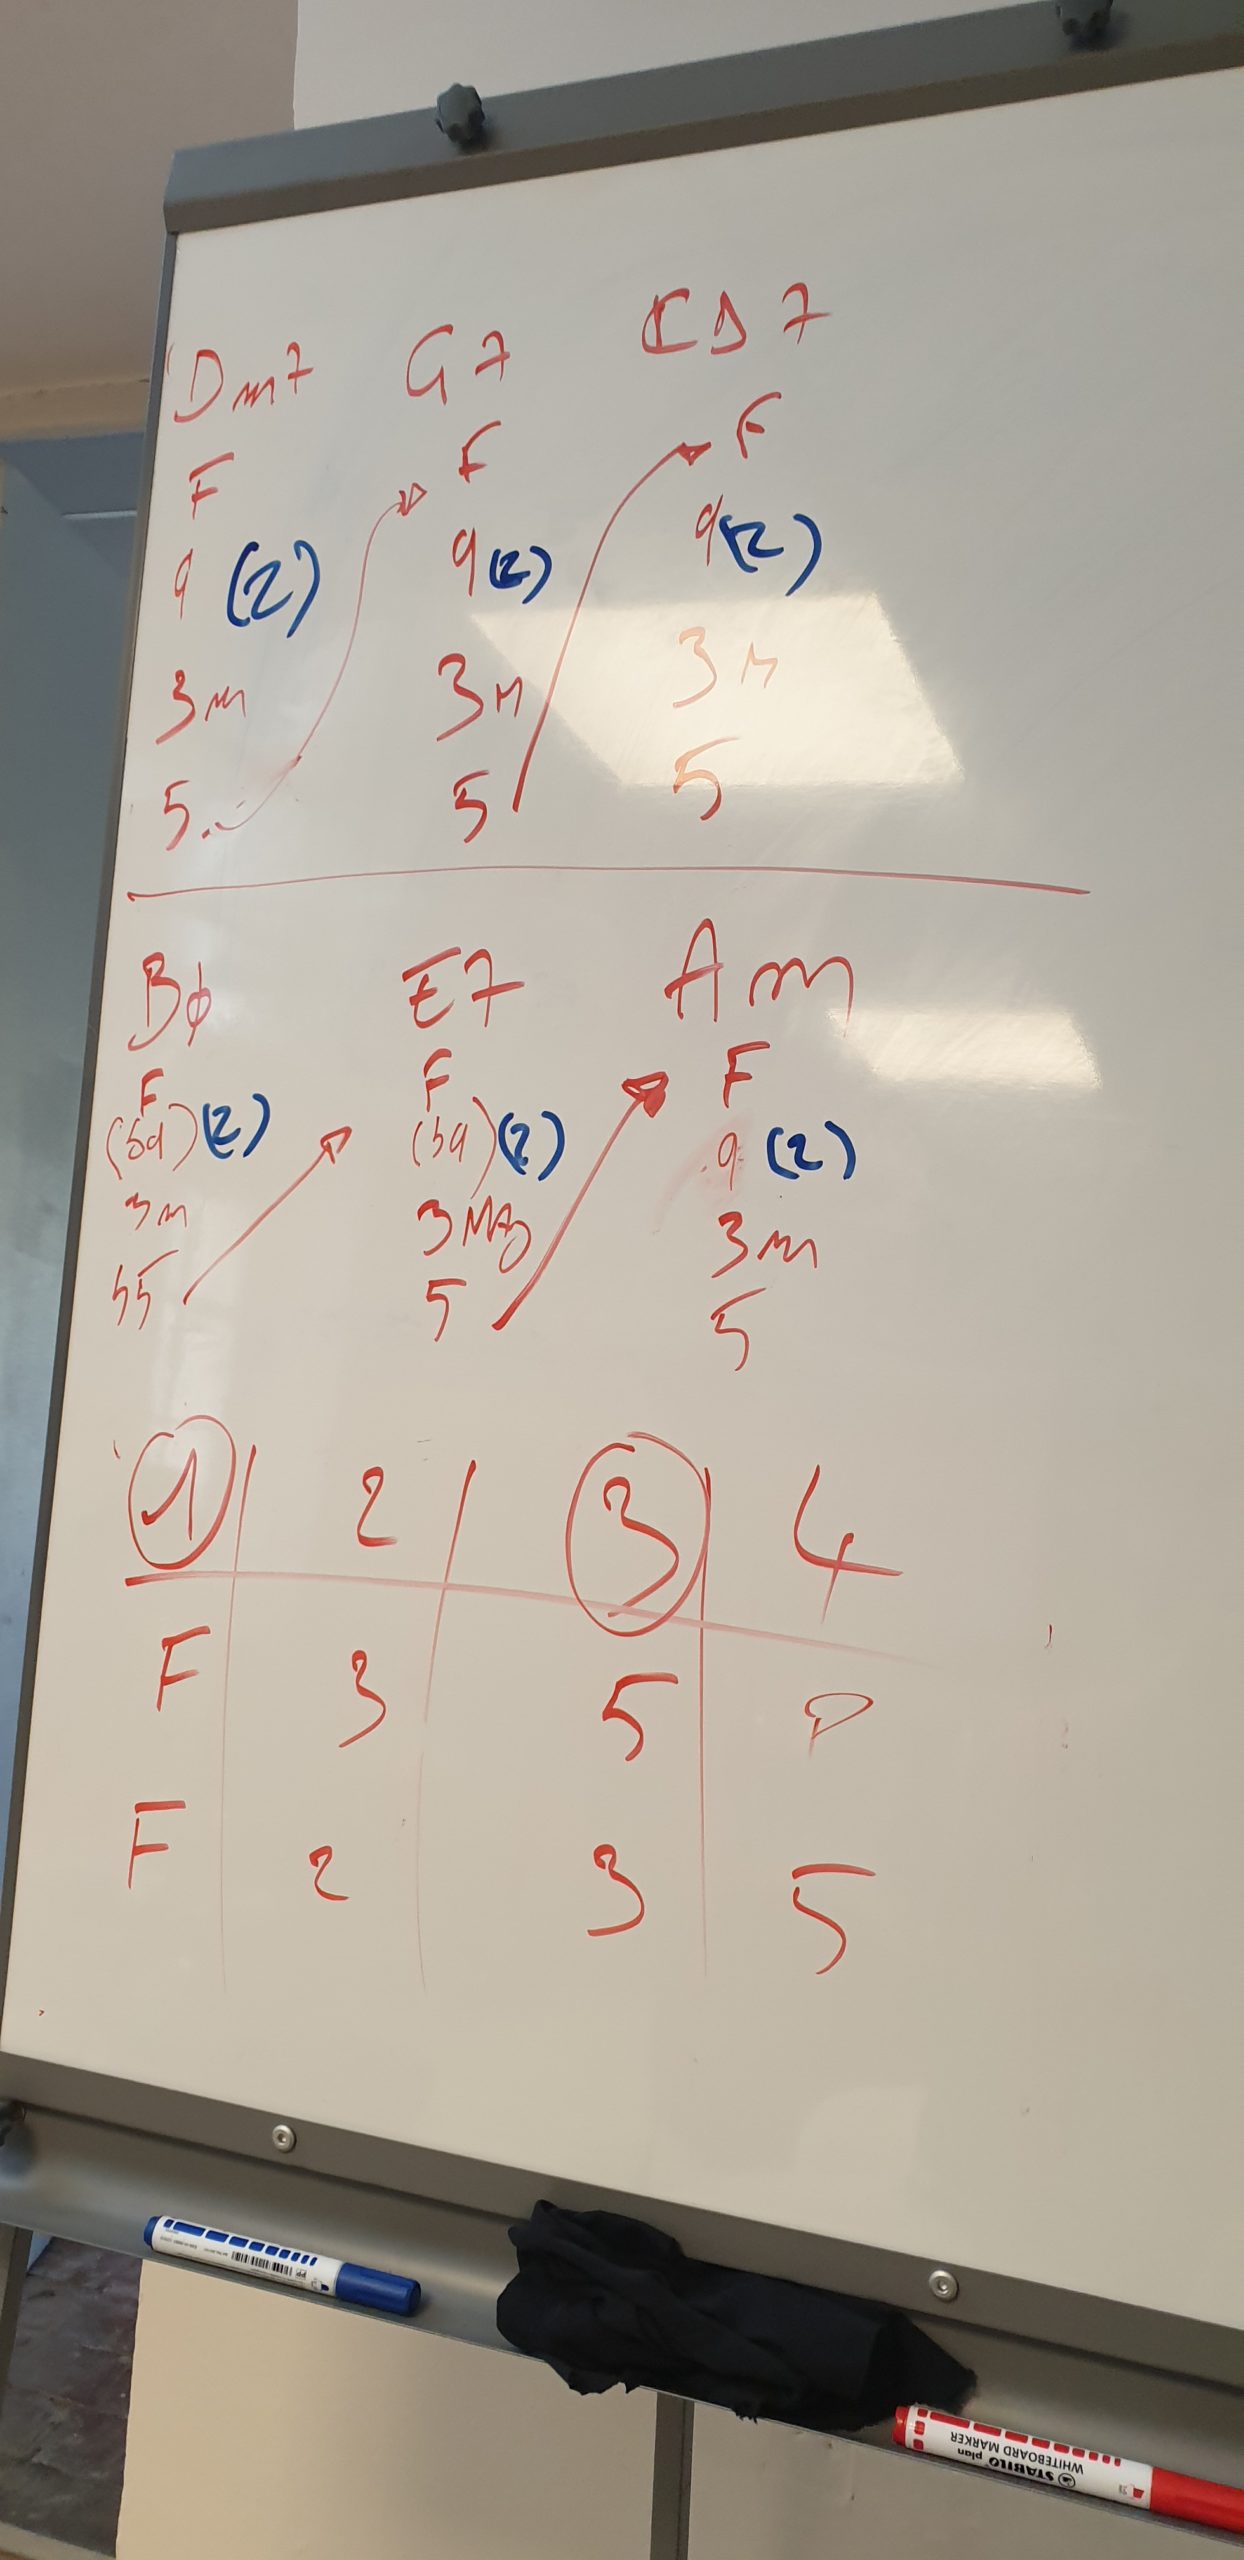 Dm7 G7 CΔ7
F F F
9 (2) 9 (2) 9 (2)
3m 3M 3M
5 5 5
Bϕ E7 Am
F F F
(b9) (2) (b9) (2) 9 (2)
3m 3Maj 3m
b5 5 5
1 2 3 4
F 3 5 P
F 2 3 5
STABILO plan
WHITEBOARD MARKER